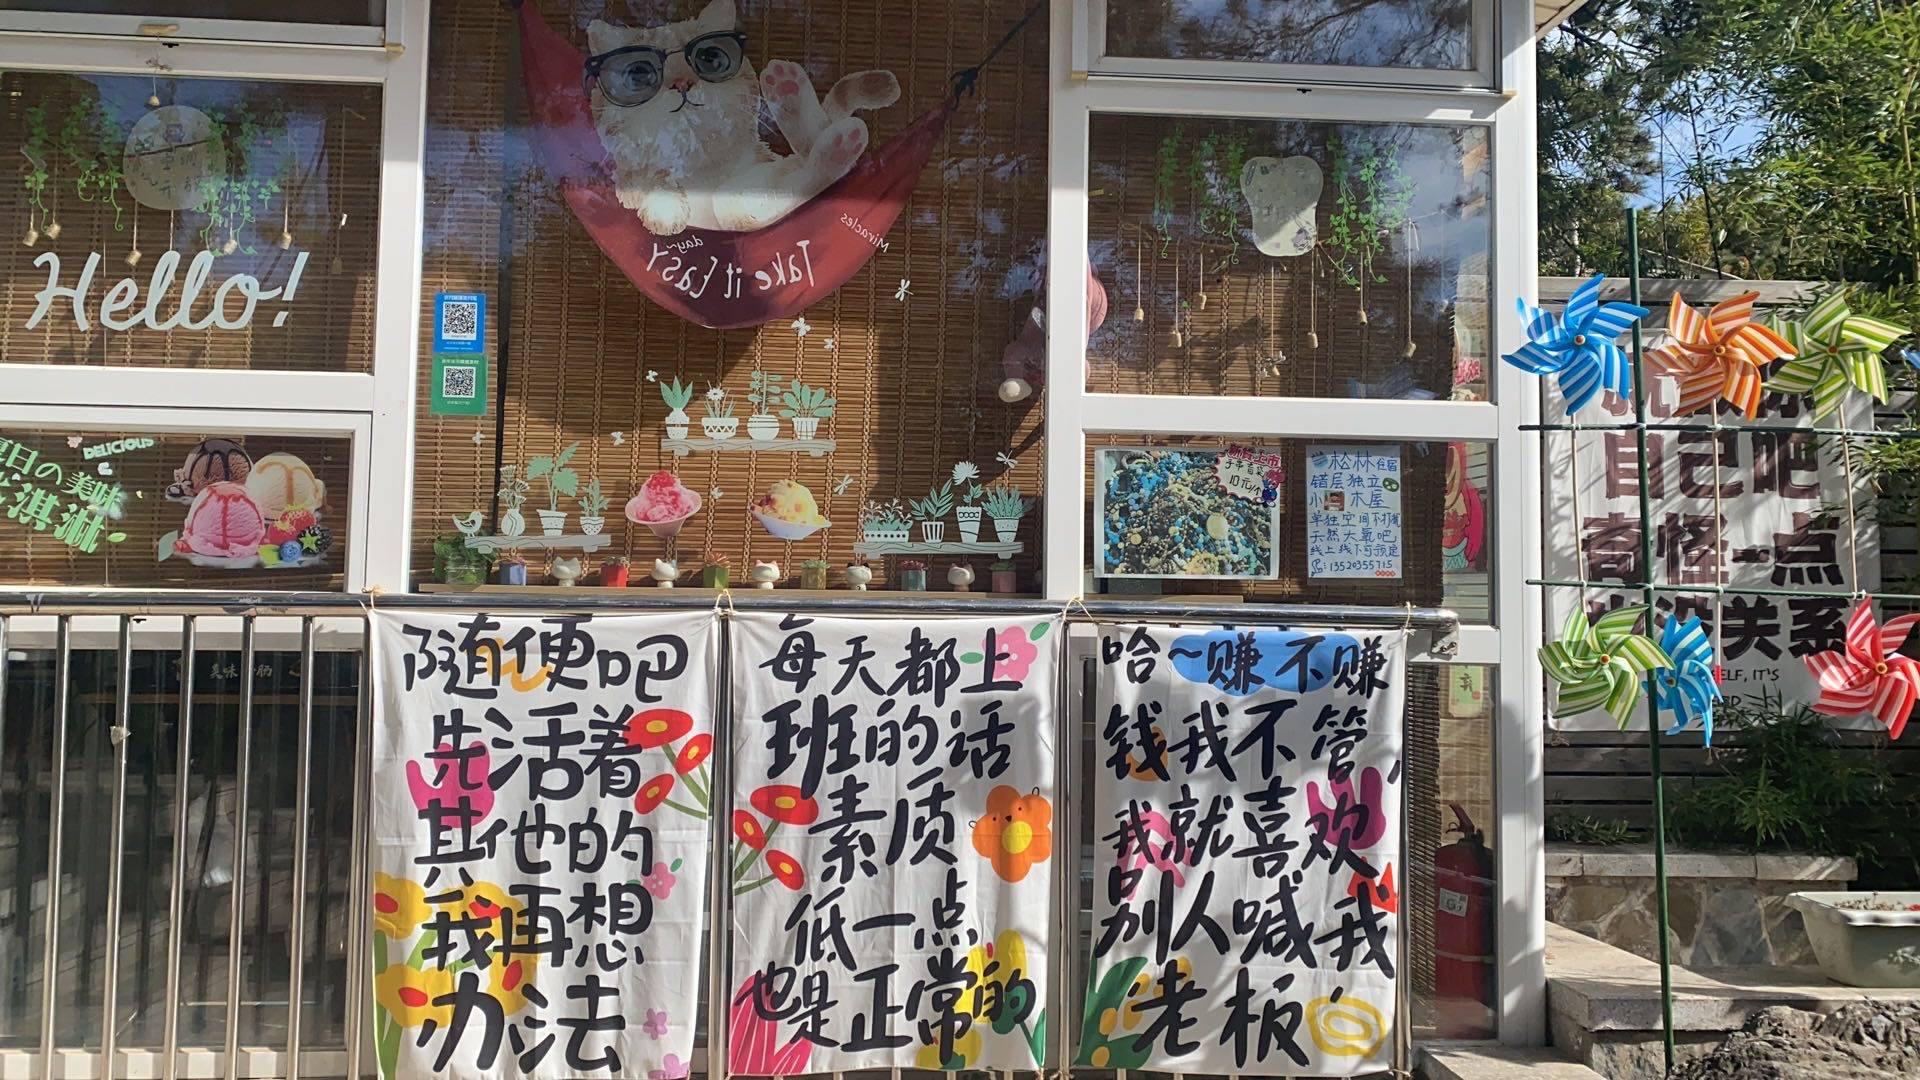 Hello!
DELICIOUS
夏日の美味
淇淋
Take it Easy
day~
Miracles
新货上市
手串首袋
10元/个
松林住宿
错层独立
小木屋
单独空间不打扰
天然大氧吧
线上线下可预定
:13520355715
随便吧
先活着
其他的
我再想
办法
每天都上
班的话
素质
低一点
也是正常的
哈~赚不赚
钱我不管,
我就喜欢
别人喊我
老板
自己吧
奇怪一点
也没关系
ELF, IT'S
美味